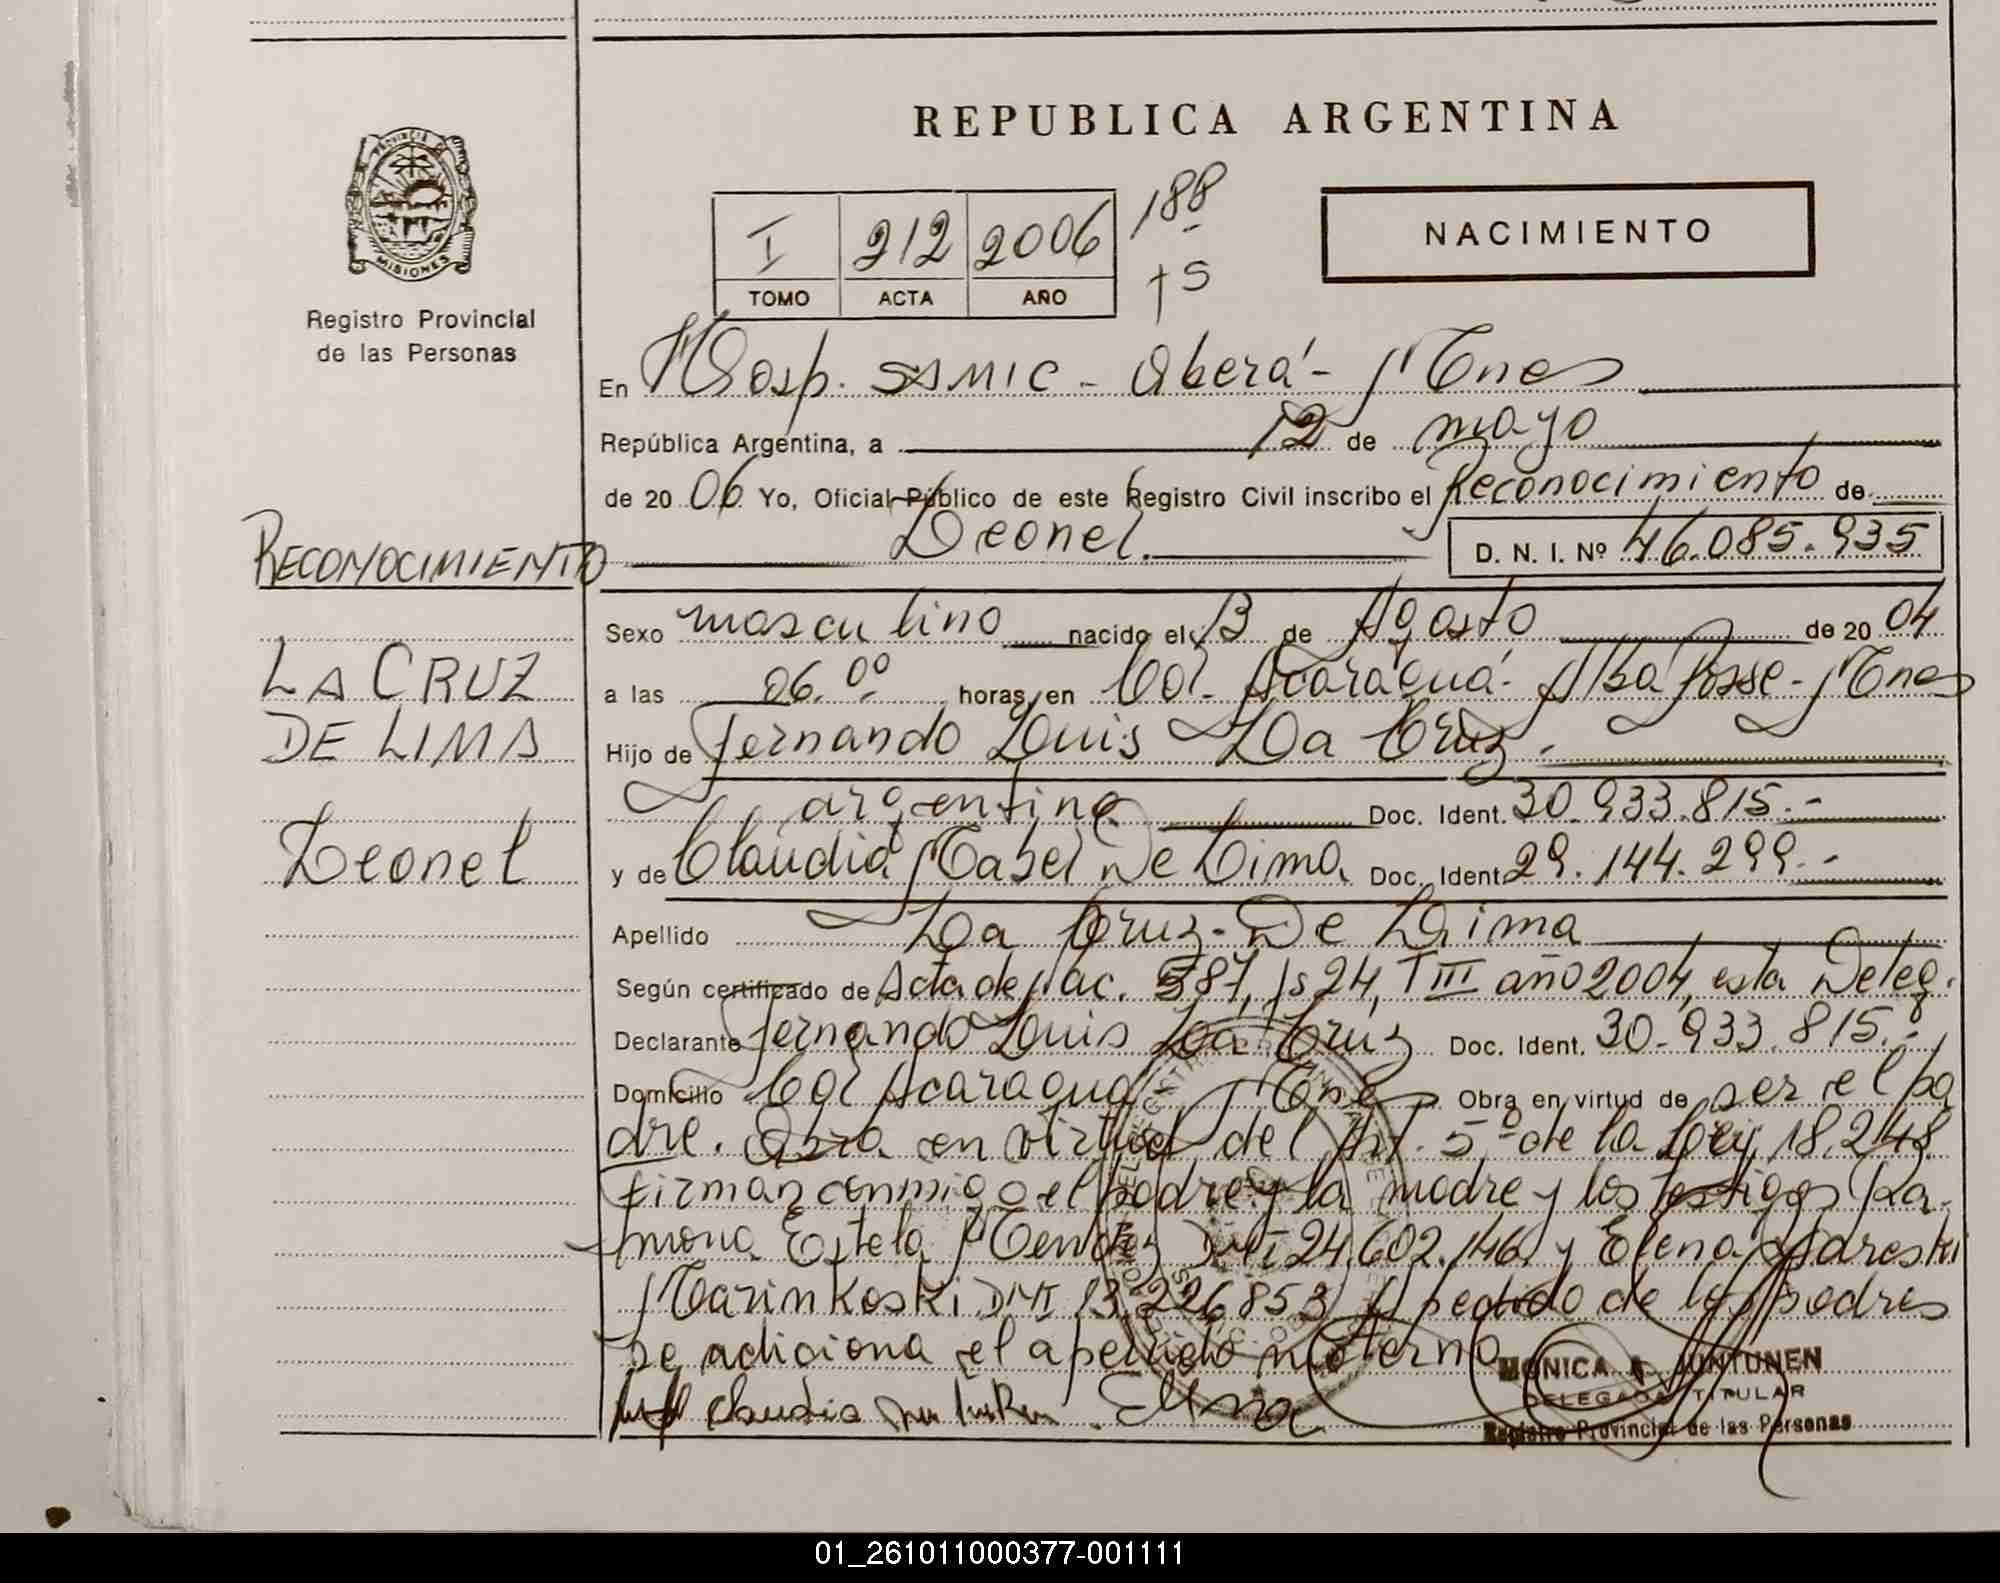 REPUBLICA ARGENTINA
PROVINCIA DE
MISIONES
Registro Provincial
de las Personas
I 212 2006 188
TOMO ACTA AÑO
NACIMIENTO
En Hosp. SAMIC - Oberá - Mnes
República Argentina, a 12 de mayo
de 20 06 Yo, Oficial Público de este Registro Civil inscribo el Reconocimiento de
Leonel. D. N. I. Nº 46.085.935
RECONOCIMIENTO
Sexo masculino nacido el 13 de Agosto de 20 04
LA CRUZ
a las 06.00 horas, en Col. Acaraguá - Alba Posse - Mnes
DE LIMA
Hijo de Fernando Luis La Cruz.
argentina Doc. Ident. 30.933.815.-
Leonel
y de Claudia Mabel De Lima Doc. Ident. 29.144.299.-
Apellido La Cruz - De Lima
Según certificado de Acta de Nac. 587, fs 24, T III año 2004, esta Deleg.
Declarante Fernando Luis La Cruz Doc. Ident. 30.933.815.-
Domicilio Col Acaragua - Mnes Obra en virtud de ser el pa
dre. Obra en virtud del Art. 5º de la Ley 18.248
Firman conmigo el padre y la madre y los testigos Ra-
mona Estela Mendez DNI 24.602.146 y Elena
Marinkoski DNI 13.226.853 A pedido de los padres
se adiciona el apellido materno
Claudia
MONICA A. JUNTUNEN
DELEGADA TITULAR
Registro Provincial de las Personas
01_261011000377-001111